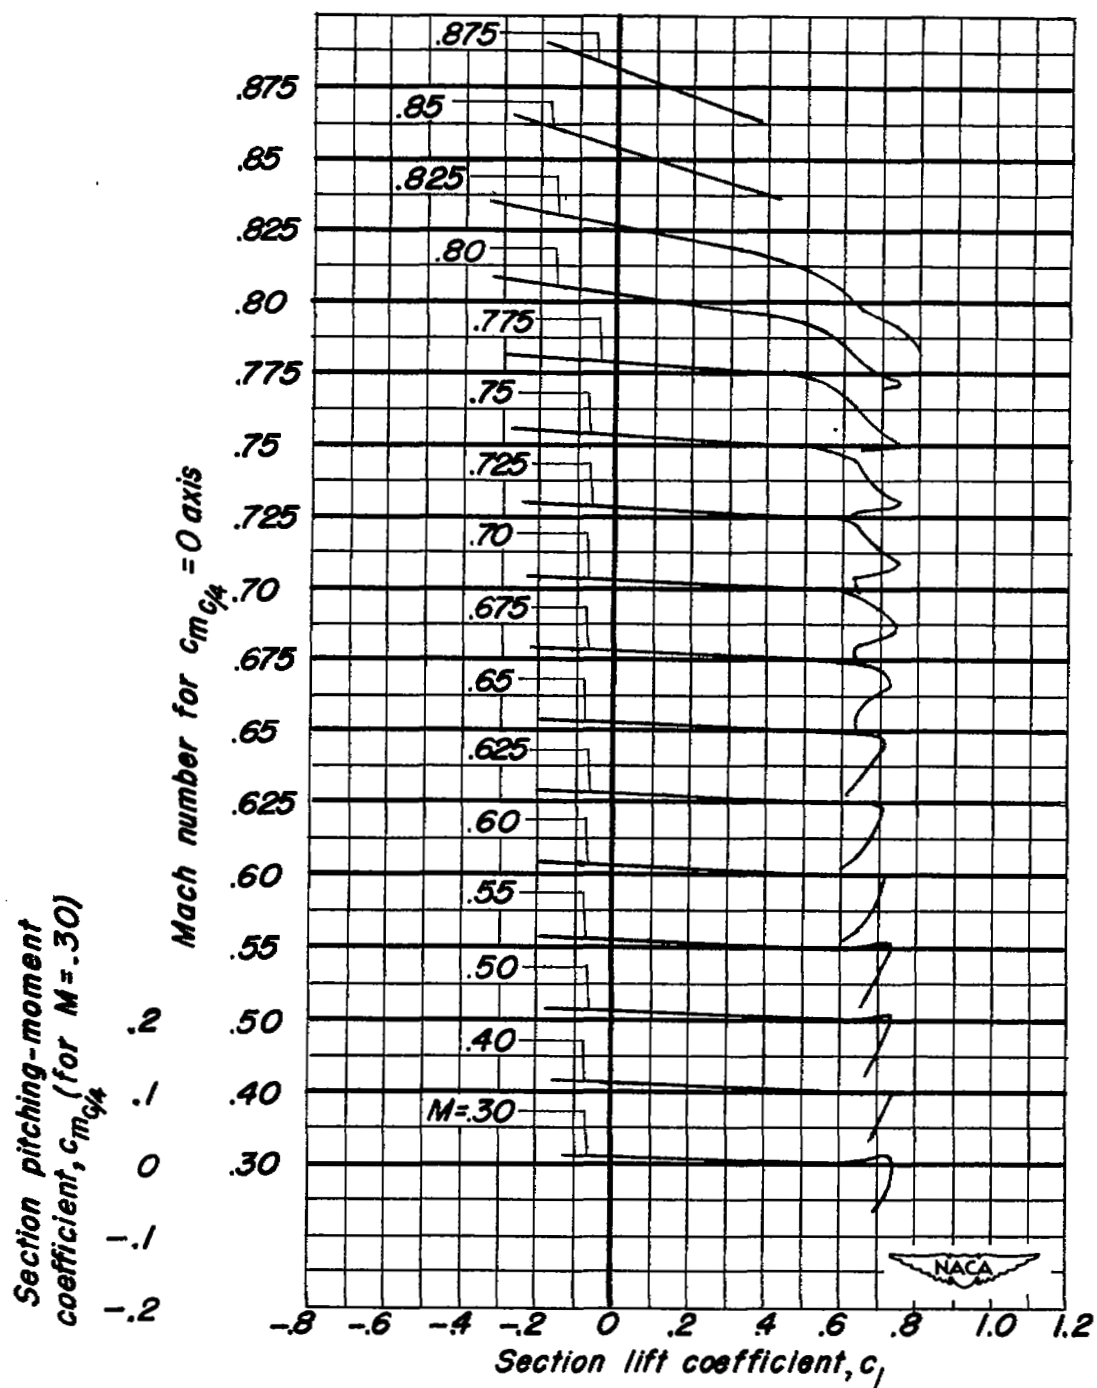 .875
.85
.825
.80
.775
.75
.725
.70
.675
.65
.625
.60
.55
.50
.40
M=.30
.875
.85
.825
.80
.775
.75
.725
.70
.675
.65
.625
.60
.55
.50
.40
.30
Mach number for cmc/4 = 0 axis
Section pitching-moment
coefficient, cmc/4 (for M=.30)
.2
.1
0
-.1
-.2
NACA
-.8 -.6 -.4 -.2 0 .2 .4 .6 .8 1.0 1.2
Section lift coefficient, cl